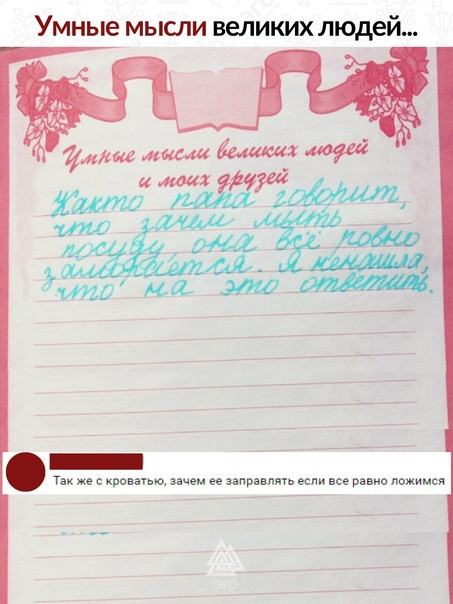 Умные мысли великих людей...
Умные мысли великих людей
и моих друзей
Както папа говорит,
что зачем мыть
посуду, она всё ровно
замарается. Я ненашла,
что на это ответить.
Так же с кроватью, зачем ее заправлять если все равно ложимся
эго